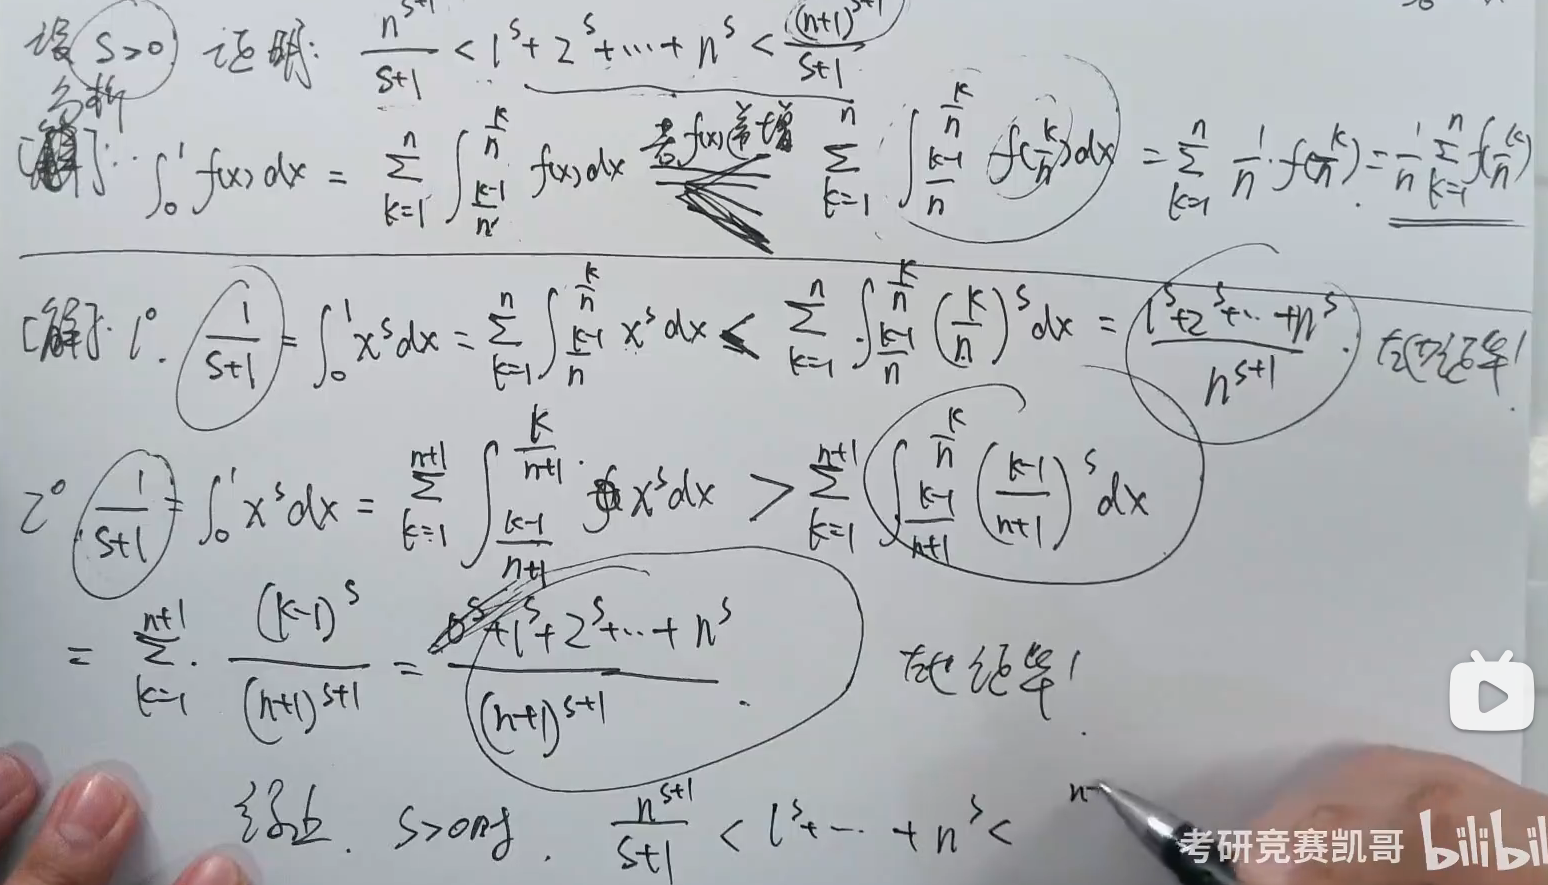 设 s>0 证明: \frac{n^{s+1}}{s+1} < 1^s + 2^s + ··· + n^s < \frac{(n+1)^{s+1}}{s+1}
分析
[解]: ∫_0^1 f(x)dx = \sum_{k=1}^{n} ∫_{\frac{k-1}{n}}^{\frac{k}{n}} f(x)dx 若f(x)单增 \sum_{k=1}^{n} ∫_{\frac{k-1}{n}}^{\frac{k}{n}} f(\frac{k}{n})dx = \sum_{k=1}^{n} \frac{1}{n}·f(\frac{k}{n}) = \frac{1}{n} \sum_{k=1}^{n} f(\frac{k}{n})
[解]: 1°. \frac{1}{s+1} = ∫_0^1 x^s dx = \sum_{k=1}^{n} ∫_{\frac{k-1}{n}}^{\frac{k}{n}} x^s dx < \sum_{k=1}^{n} ∫_{\frac{k-1}{n}}^{\frac{k}{n}} (\frac{k}{n})^s dx = \frac{1^s+2^s+··+n^s}{n^{s+1}}. 左边证毕!
2° \frac{1}{s+1} = ∫_0^1 x^s dx = \sum_{k=1}^{n+1} ∫_{\frac{k-1}{n+1}}^{\frac{k}{n+1}} x^s dx > \sum_{k=1}^{n+1} ∫_{\frac{k-1}{n+1}}^{\frac{k}{n}} (\frac{k-1}{n+1})^s dx
= \sum_{k=1}^{n+1} \frac{(k-1)^s}{(n+1)^{s+1}} = \frac{0^s+1^s+2^s+··+n^s}{(n+1)^{s+1}}. 证毕!
综上. s>0时. \frac{n^{s+1}}{s+1} < 1^s + ·· + n^s < n
考研竞赛凯哥 bilibili